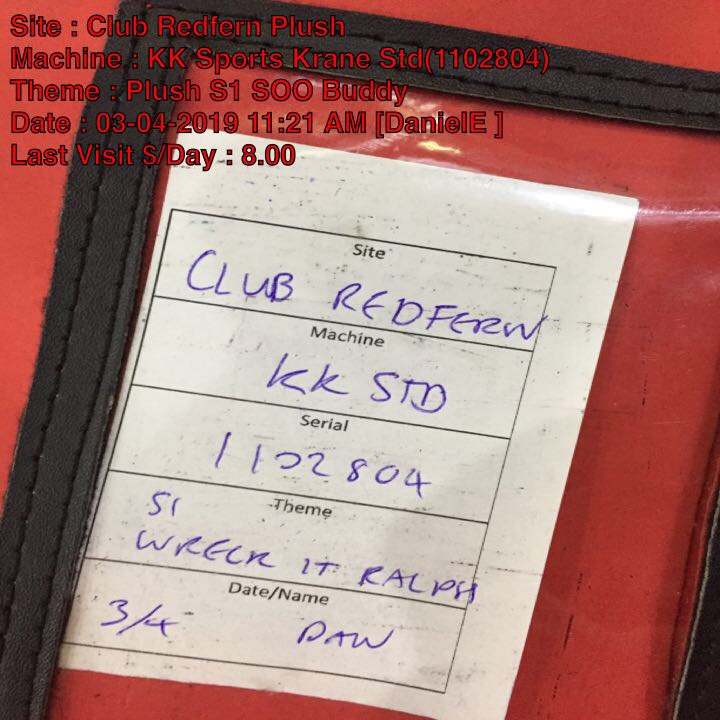 Site : Club Redfern Plush
Machine : KK Sports Krane Std(1102804)
Theme : Plush S1 SOO Buddy
Date : 03-04-2019 11:21 AM [DanielE ]
Last Visit $/Day : 8.00
Site
CLUB REDFERN
Machine
KK STD
Serial
1102804
Theme
S1
WRECK IT RALPH
Date/Name
3/4 DAN